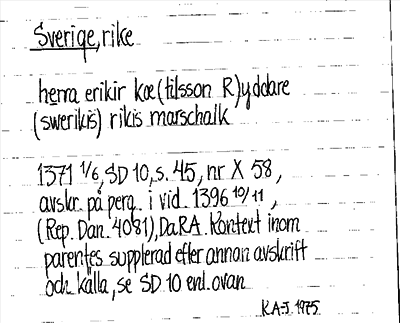 Sverige, rike
herra erikir kæ(tilsson R)yddare
(swerikis) rikis marschalk
1371 1/6, SD 10, s. 45, nr X 58,
avskr. på perg. i vid. 1396 10/11,
(Rep. Dan. 4081), DaRA. Kontext inom
parentes supplerad efter annan avskrift
och källa, se SD 10 enl. ovan
K.A-J. 1975